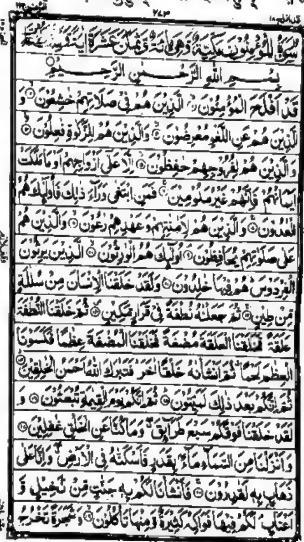 سُوْرَةُ الْمُؤْمِنُوْنَ مَكِّيَّةٌ وَّهِيَ مِائَةٌ وَّثَمَانِ عَشْرَةَ اٰيَةً
بِسْمِ اللّٰهِ الرَّحْمٰنِ الرَّحِيْمِ
قَدْ اَفْلَحَ الْمُؤْمِنُوْنَ ۙ الَّذِيْنَ هُمْ فِيْ صَلَاتِهِمْ خٰشِعُوْنَ ۙ وَ
الَّذِيْنَ هُمْ عَنِ اللَّغْوِ مُعْرِضُوْنَ ۙ وَالَّذِيْنَ هُمْ لِلزَّكٰوةِ فٰعِلُوْنَ ۙ
وَالَّذِيْنَ هُمْ لِفُرُوْجِهِمْ حٰفِظُوْنَ ۙ اِلَّا عَلٰٓى اَزْوَاجِهِمْ اَوْ مَا مَلَكَتْ
اَيْمَانُهُمْ فَاِنَّهُمْ غَيْرُ مَلُوْمِيْنَ ۚ فَمَنِ ابْتَغٰى وَرَآءَ ذٰلِكَ فَاُولٰٓئِكَ هُمُ
الْعٰدُوْنَ ۚ وَالَّذِيْنَ هُمْ لِاَمٰنٰتِهِمْ وَعَهْدِهِمْ رٰعُوْنَ ۙ وَالَّذِيْنَ هُمْ
عَلٰى صَلَوٰتِهِمْ يُحَافِظُوْنَ ۘ اُولٰٓئِكَ هُمُ الْوٰرِثُوْنَ ۙ الَّذِيْنَ يَرِثُوْنَ
الْفِرْدَوْسَ هُمْ فِيْهَا خٰلِدُوْنَ وَلَقَدْ خَلَقْنَا الْاِنْسَانَ مِنْ سُلٰلَةٍ
مِّنْ طِيْنٍ ۚ ثُمَّ جَعَلْنٰهُ نُطْفَةً فِيْ قَرَارٍ مَّكِيْنٍ ۪ ثُمَّ خَلَقْنَا النُّطْفَةَ
عَلَقَةً فَخَلَقْنَا الْعَلَقَةَ مُضْغَةً فَخَلَقْنَا الْمُضْغَةَ عِظٰمًا فَكَسَوْنَا
الْعِظٰمَ لَحْمًا ثُمَّ اَنْشَاْنٰهُ خَلْقًا اٰخَرَ فَتَبٰرَكَ اللّٰهُ اَحْسَنُ الْخٰلِقِيْنَ
ثُمَّ اِنَّكُمْ بَعْدَ ذٰلِكَ لَمَيِّتُوْنَ ثُمَّ اِنَّكُمْ يَوْمَ الْقِيٰمَةِ تُبْعَثُوْنَ وَ
لَقَدْ خَلَقْنَا فَوْقَكُمْ سَبْعَ طَرَآئِقَ وَمَا كُنَّا عَنِ الْخَلْقِ غٰفِلِيْنَ
وَاَنْزَلْنَا مِنَ السَّمَآءِ مَآءً بِقَدَرٍ فَاَسْكَنّٰهُ فِي الْاَرْضِ وَاِنَّا عَلٰى
ذَهَابٍ بِهٖ لَقٰدِرُوْنَ فَاَنْشَاْنَا لَكُمْ بِهٖ جَنّٰتٍ مِّنْ نَّخِيْلٍ وَّ
اَعْنَابٍ لَكُمْ فِيْهَا فَوَاكِهُ كَثِيْرَةٌ وَّمِنْهَا تَاْكُلُوْنَ وَشَجَرَةً تَخْرُجُ